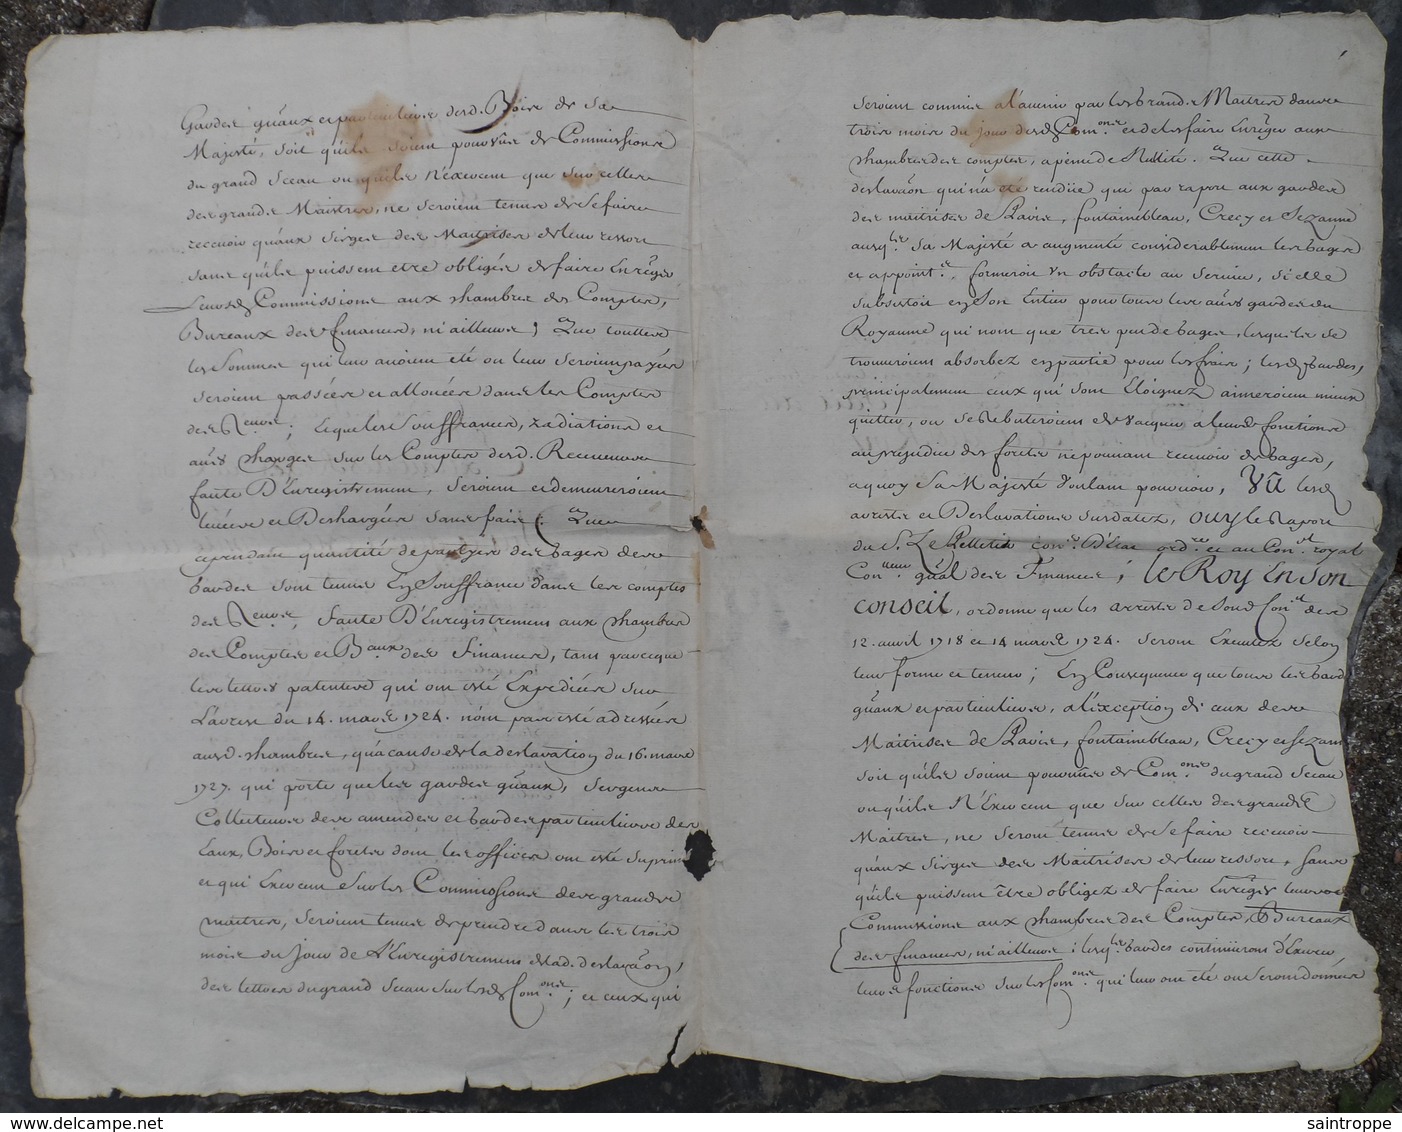 Gardes g'naux et particuliers desd. Bois de Sa
Majesté, soit qu'ils soient pourvûs de Commissions
du grand Sceau ou qu'ils n'exercent que sur celles
des grands Maitres, ne seroient tenus de se faire
recevoir qu'aux Sieges des Maitrises de leur ressort
sans qu'ils puissent etre obligés de faire Enrëger
leursd. Commissions aux chambres des Comptes,
Bureaux des finances, ni ailleurs; Que touttes
les Sommes qui leur auroient été ou leur seroient payées
seroient passées et allouées dans les Comptes
des Receveurs; lesquelles Souffrances, radiations et
aûs charges sur les Comptes desd. Receveurs
faute D'Enregistrement, seroient et demeureroient
levées et Deschargées sans frais. Que
cependant quantité de parties des Gages desd.
Gardes sont tenues En Souffrance dans les comptes
des Receveurs, faute D'Enregistrement aux chambres
des Comptes et B.aux des Finances, tant parceque
les lettres patentes qui ont esté Expediées sur
L'arrest du 14. mars 1724. n'ont pas esté adressées
ausd. chambres, qu'a cause de la declaration du 16. mars
1727. qui porte que les gardes g'naux, Sergens
Collecteurs des amendes et Gardes particuliers des
Eaux, Bois et forets dont les offices ont esté suprimés
et qui Exercent sur les Commissions des grands
maitres, seroient tenus de prendre dans les trois
mois du Jour de L'Enregistrement de lad. declaraôn,
des lettres du grand Sceau sur lesd. Com.ons; et ceux qui
seroient commis a l'avenir par les Grands Maitres dans
trois mois du jour desd. Com.ons et de les faire Enrëger aux
chambres des comptes, a peine de Nullité. Que cette
declaraôn qui n'a été rendüe que par raport aux gardes
des maitrises de Paris, fontainebleau, Crecy et Sezanne
ausq.ls Sa Majesté a augmenté considerablement les gages
et appoint.s formeroit un obstacle au Service, si elle
subsistoit en Son Entier pour tous les aûs gardes du
Royaume qui n'ont que tres peu de gages, lesquels se
trouveroient absorbez en partie pour les frais; lesd. Gardes,
principalement ceux qui sont Eloignez aimeroient mieux
quitter, ou se rebuteroient de vacquer a leurs fonctions
au préjudice des forets ne pouvant recevoir de gages,
a quoy Sa Majesté voulant pourvoir, Vû lesd.
arrests et Declarations susdatez, ouy le Raport
du S. Le Pelletier con.er D'Etat ord.re et au Con.el royal
Con.eur g'ñal des Finances; le Roy En son
conseil, ordonne que les arrests de Sond. Con.el des
12. avril 1718 et 14 mars 1724. seront Executez selon
leur forme et teneur; En Consequence que tous les Gardes
g'ñaux et particuliers, a l'exception de ceux des
Maitrises de Paris, fontainebleau, Crecy et Sezanne
soit qu'ils soient pourvus de Com.ons du grand Sceau
ou qu'ils N'Exercent que sur celles des grands
Maitres, ne seront tenus de se faire recevoir
qu'aux Sieges des Maitrises de leur ressort, sans
qu'ils puissent être obligez de faire Enrëger leursd.
Commissions aux chambres des Comptes, Bureaux
des finances, ni ailleurs: lesq.ls Gardes continüront d'Exercer
leurs fonctions sur les Com.ons qui leur ont été ou seront données
saintroppe